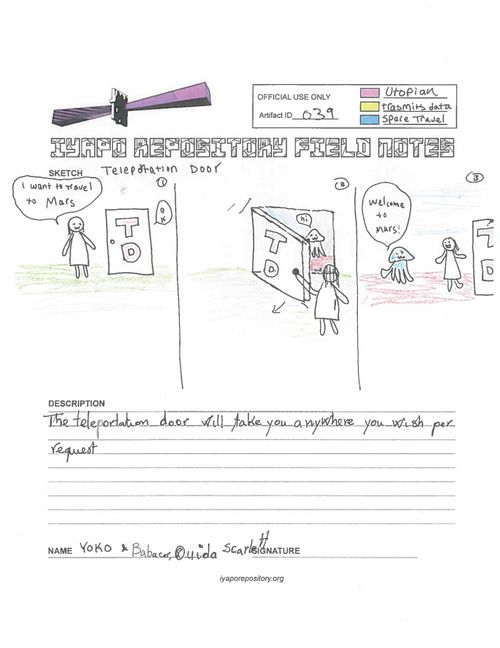 OFFICIAL USE ONLY
Artifact ID 039
Utopian
trasmits data
Space Travel
IYAPO REPOSITORY FIELD NOTES
SKETCH Teleportation Door
1
I want to travel
to Mars
T
D
OK
2
hi
T
D
3
Welcome
to
Mars!
T
D
DESCRIPTION
The teleportation door will take you anywhere you wish per
request
NAME YOKO & Babacar, Ouida Scarlett
SIGNATURE
iyaporepository.org